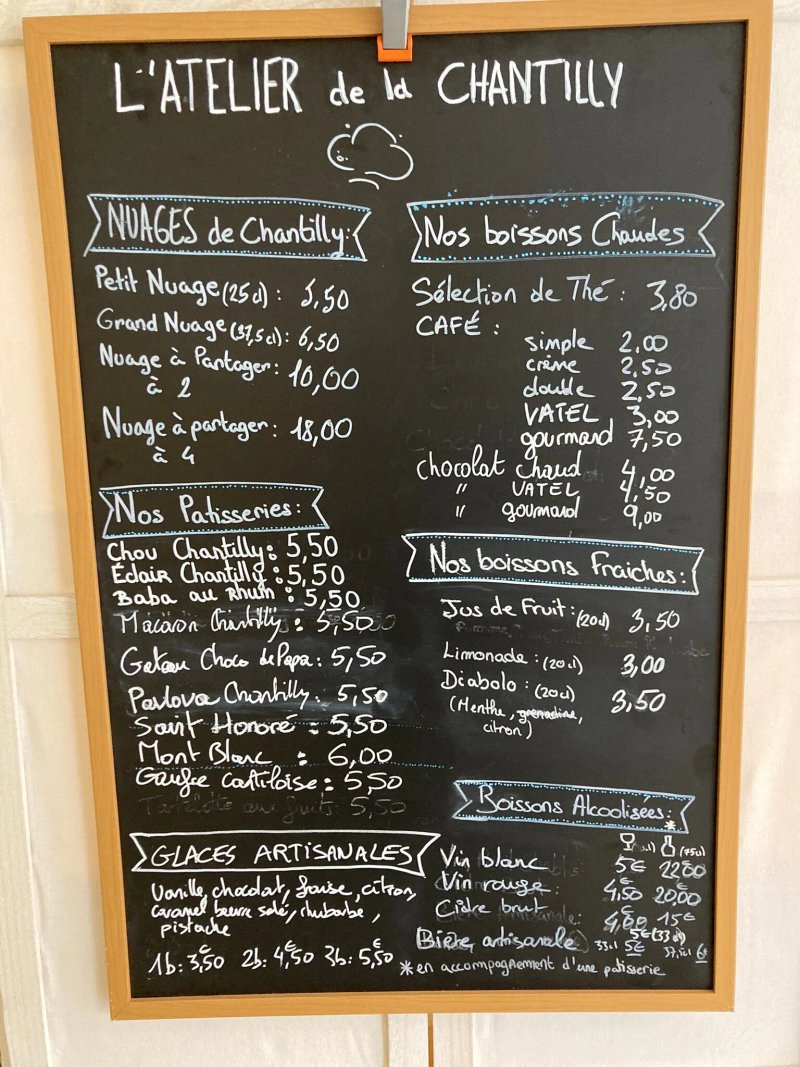 L'ATELIER de la CHANTILLY
NUAGES de Chantilly:
Petit Nuage (25 cl) : 5,50
Grand Nuage (37,5 cl) : 6,50
Nuage à Partager : 10,00
à 2
Nuage à partager : 18,00
à 4
Nos Patisseries:
Chou Chantilly : 5,50
Éclair Chantilly : 5,50
Baba au Rhum : 5,50
Macaron Chantilly : 5,50
Gateau Choco de Papa : 5,50
Pavlova Chantilly : 5,50
Saint Honoré : 5,50
Mont Blanc : 6,00
Gaufre : 5,50
Tartelette aux fruits 5,50
GLACES ARTISANALES
Vanille, chocolat, fraise, citron,
caramel beurre salé, rhubarbe,
pistache
1b: 3,50€ 2b: 4,50€ 3b: 5,50€
Nos boissons Chaudes
Sélection de Thé : 3,80
CAFÉ :
simple 2,00
crème 2,50
double 2,50
VATEL 3,00
gourmand 7,50
chocolat chaud 4,00
" VATEL 4,50
" gourmand 9,00
Nos boissons Fraiches:
Jus de Fruit : (20cl) 3,50
Limonade : (20cl) 3,00
Diabolo : (20cl) 3,50
(Menthe, grenadine,
citron)
Boissons Alcoolisées: *
(75cl)
Vin blanc 5€ 22,00
Vin rouge 4,50€ 20,00€
Cidre brut 4,00€ 15€
Bière artisanale 33cl 5€ (33cl) 37,5cl 6€
* en accompagnement d'une patisserie